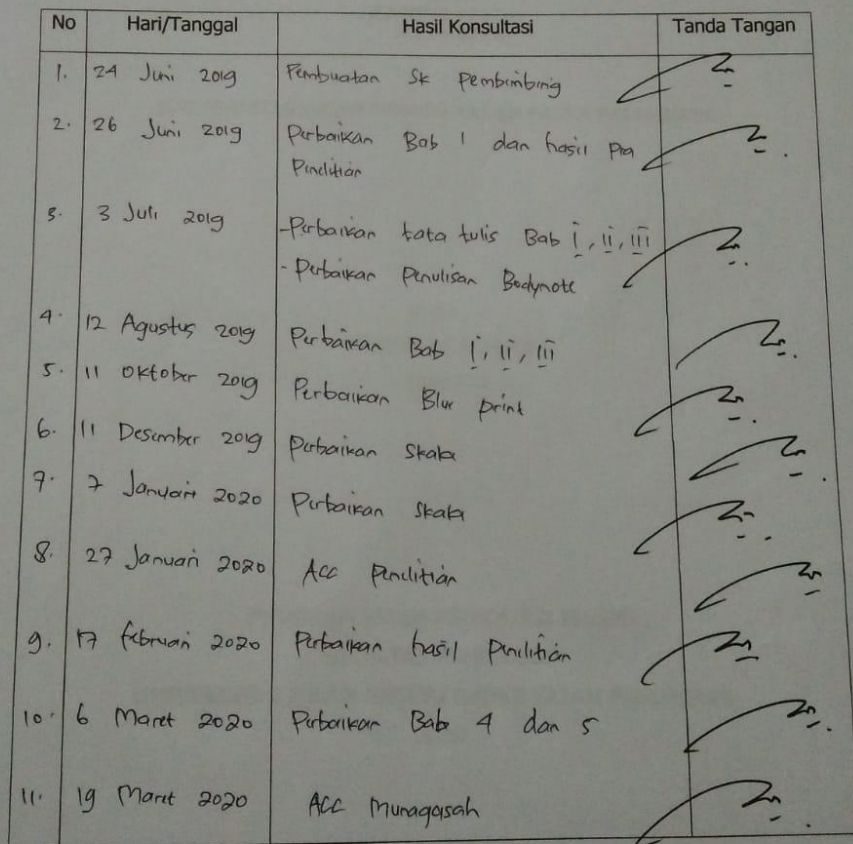 No Hari/Tanggal Hasil Konsultasi Tanda Tangan
1. 24 Juni 2019 Pembuatan Sk Pembimbing
2. 26 Juni 2019 Perbaikan Bab 1 dan hasil Pra
Penelitian
3. 3 Juli 2019 -Perbaikan tata tulis Bab I, II, III
- Perbaikan Penulisan Bodynote
4. 12 Agustus 2019 Perbaikan Bab I, II, III
5. 11 Oktober 2019 Perbaikan Blue print
6. 11 Desember 2019 Perbaikan Skala
7. 7 Januari 2020 Perbaikan Skala
8. 27 Januari 2020 Acc Penelitian
9. 17 februari 2020 Perbaikan hasil penelitian
10. 6 Maret 2020 Perbaikan Bab 4 dan 5
11. 19 Maret 2020 Acc Munaqasah